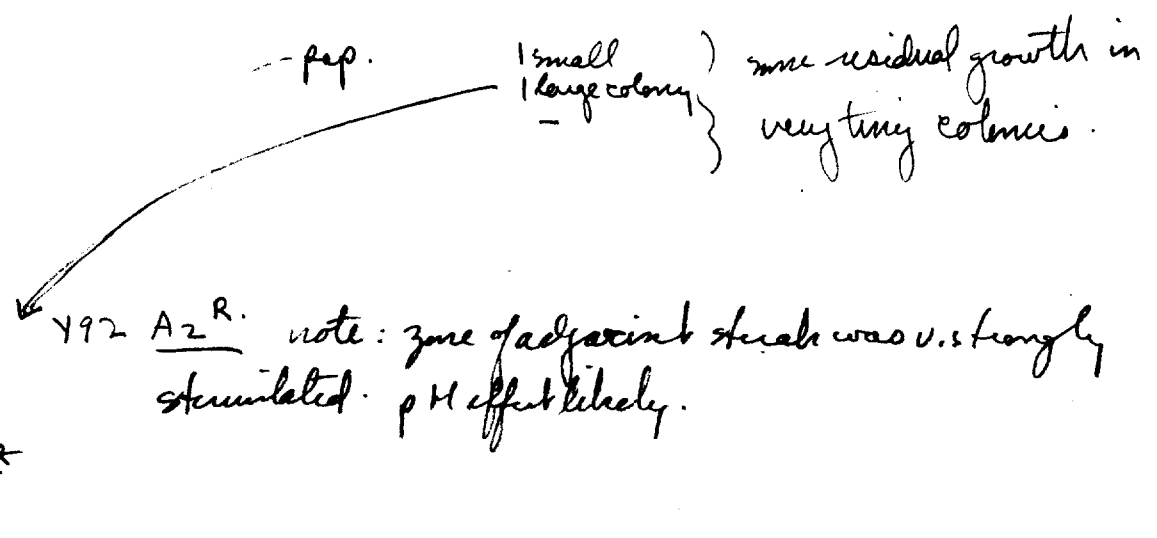 -- pap. 1 small ) some residual growth in
1 large colony } very tiny colonies.
Y92 Az^R. note: zone of adjacent streak was v. strongly
stimulated. pH effect likely.